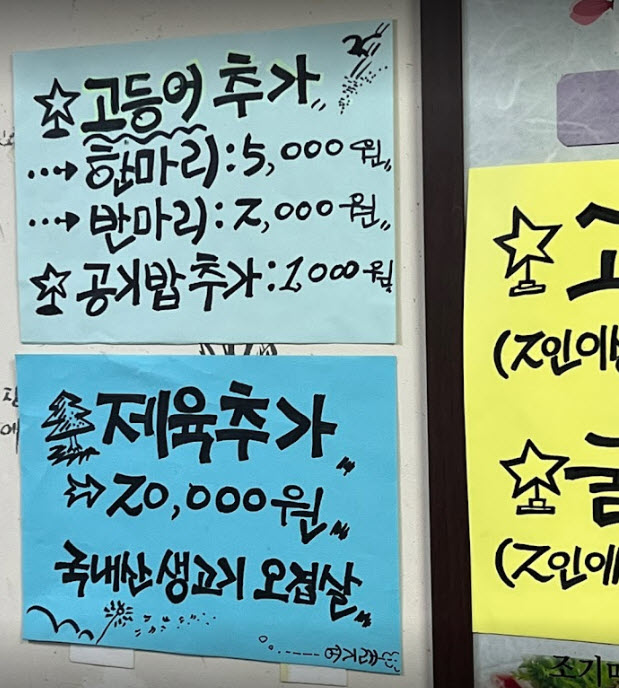 고등어 추가
한마리: 5,000원
반마리: 2,000원
공기밥 추가: 1,000원
제육추가
20,000원
국내산 생고기 오겹살
고
(2인이
굴
(2인이
조기